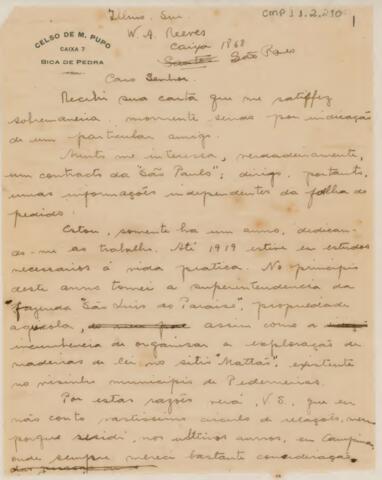 CMP 1.1.2.290
1
CELSO DE M. PUPO
CAIXA 7
BICA DE PEDRA
Illmo. Snr.
W. A. Reeves
Caixa 1868
Santos São Paulo
Caro Senhor.
Recebi sua carta que me satisfez
sobremaneira, mormente sendo por indicação
de um particular amigo.
Muito me interessa, verdadeiramente,
um contracto da "São Paulo"; dirijo, portanto,
umas informações independentes da folha de
pedido.
Estou, somente ha um anno, dedican-
do-me ao trabalho. Até 1919 estive em estudos
necessarios á vida pratica. No principio
deste anno tomei a superintendencia da
fazenda "São Luis do Paraiso", propriedade
agricola, assim como a
incumbencia de organisar a exploração de
madeiras de lei, no sitio "Mattão", existente
no visinho municipio de Pederneiras.
Por estas razões verá, V. S., que eu
não conto vastissimo circulo de relações, nem
porque residi, nos ultimos annos, em Campinas,
onde sempre mereci bastante consideração